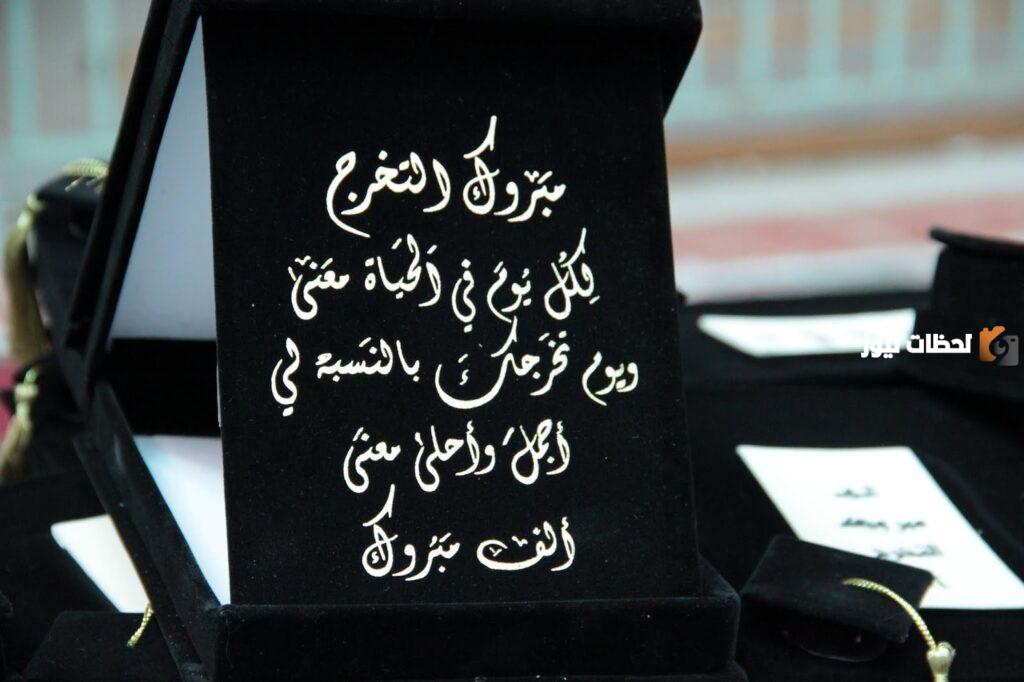 مبَرْوك التخرج
لِكُل يُومَ في اَلحَيَاة معَنىْ
ويوم تخَرَجك َ بالنَسبة لي
أجملَ وأحلىْ معنىَ
ألف مبَرُوك
لحظات نيوز